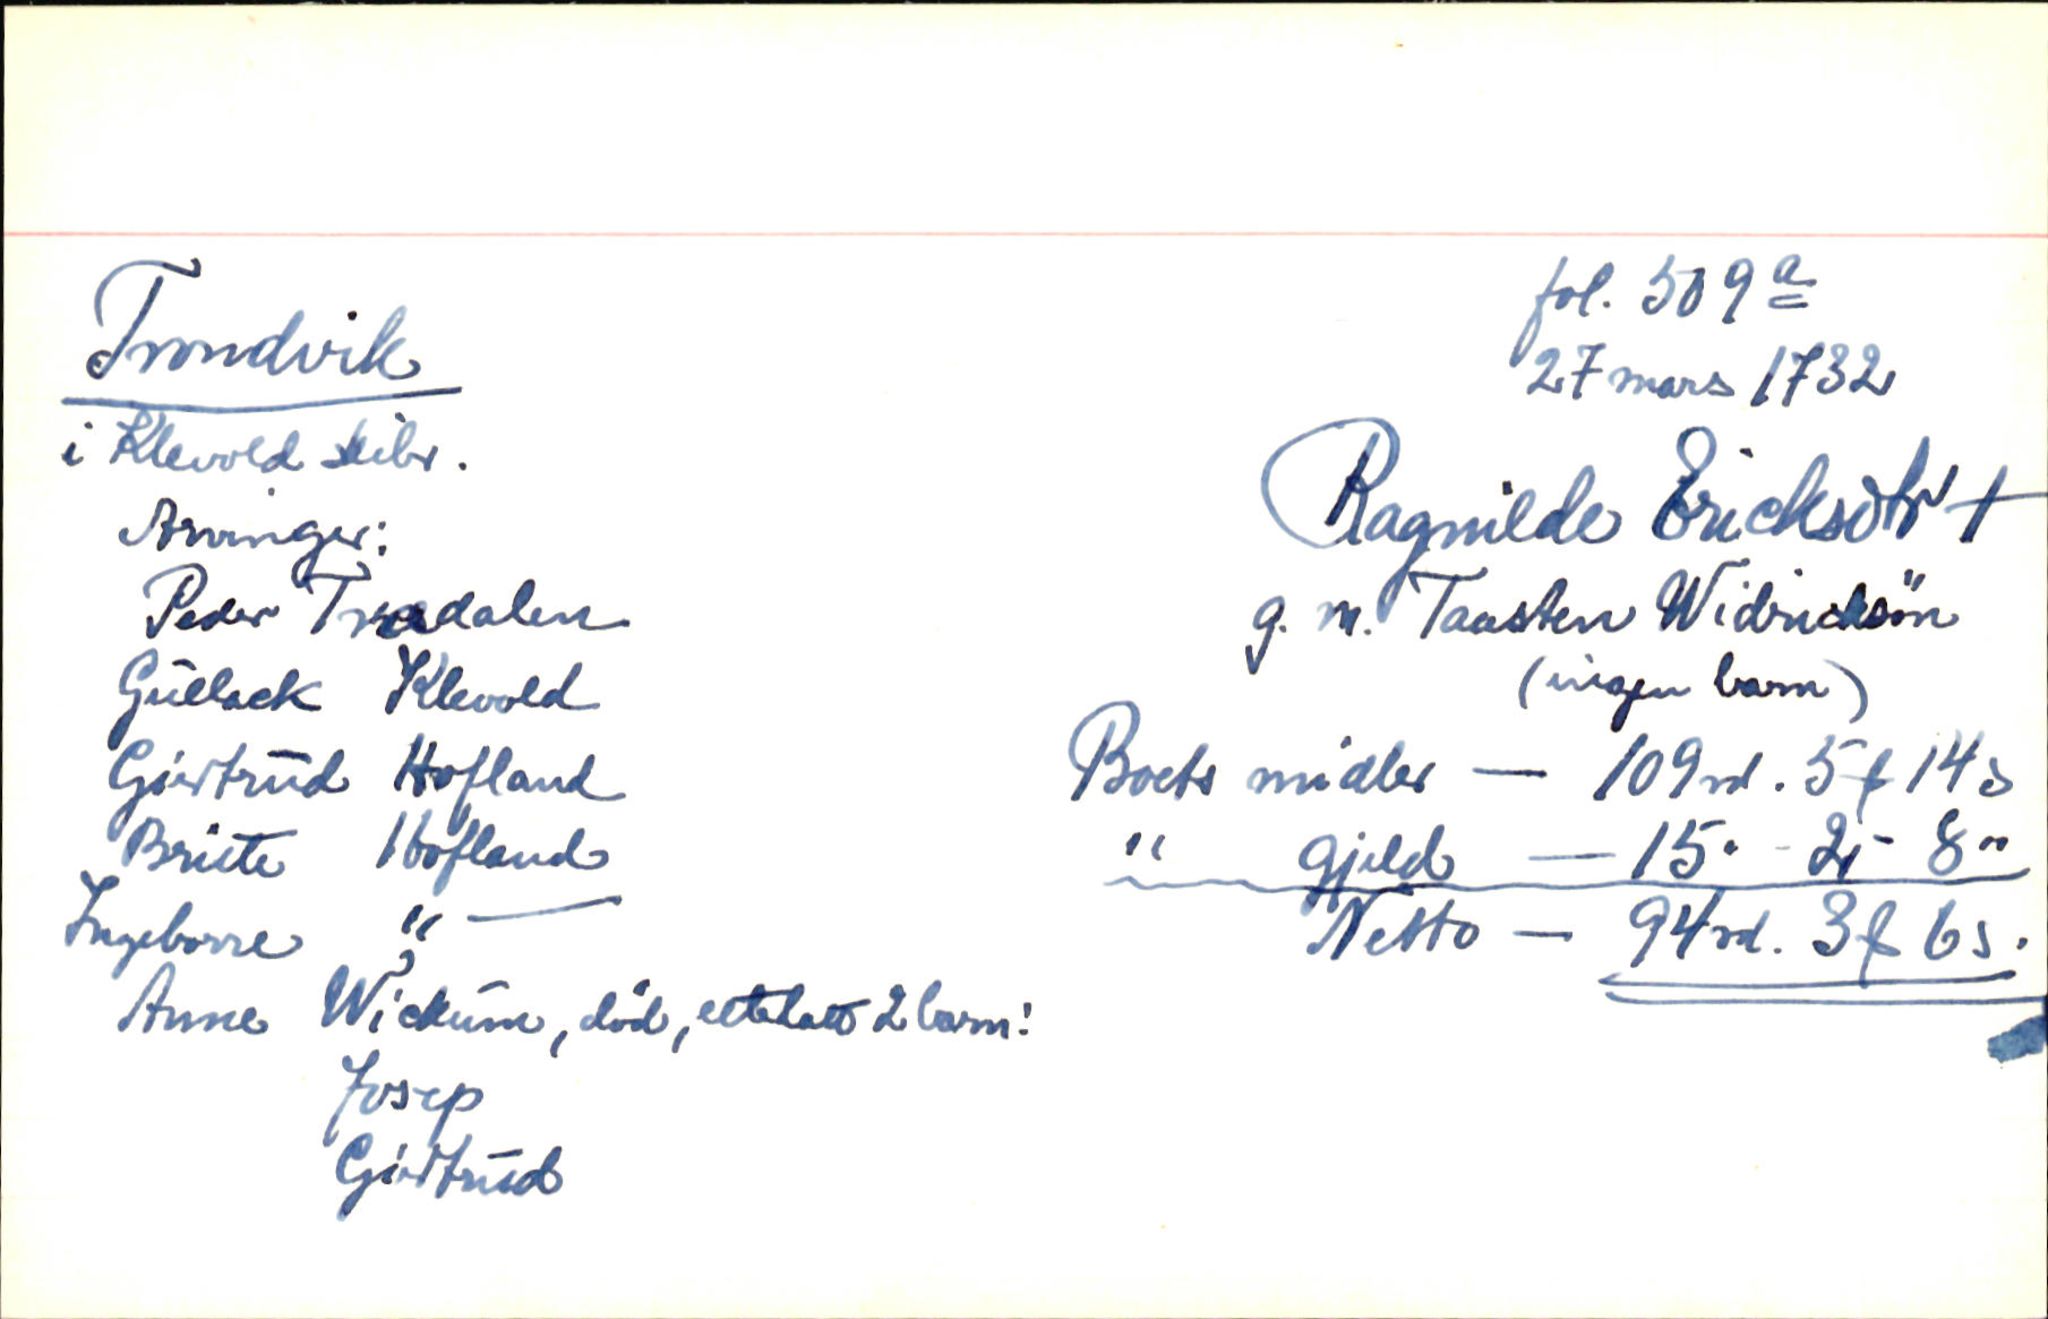 Trondvik
i Klevold skibr.
Arvinger:
Peder Trædalen
Gúllack Klevold
Giertrúd Hofland
Britte Hofland
Ingeborre " —
Anne Wickúm, död, etterlatt 2 barn:
Josep
Giertrúd
fol. 509 a
27 mars 1732
Ragnilde Ericksdtr †
g. m. Taasten Widricksön
(ingen barn)
Boets midler — 109 rd. 5 f 14 s
" gjeld — 15 " - 2 - 8 "
Netto — 94 rd. 3 f 6 s.